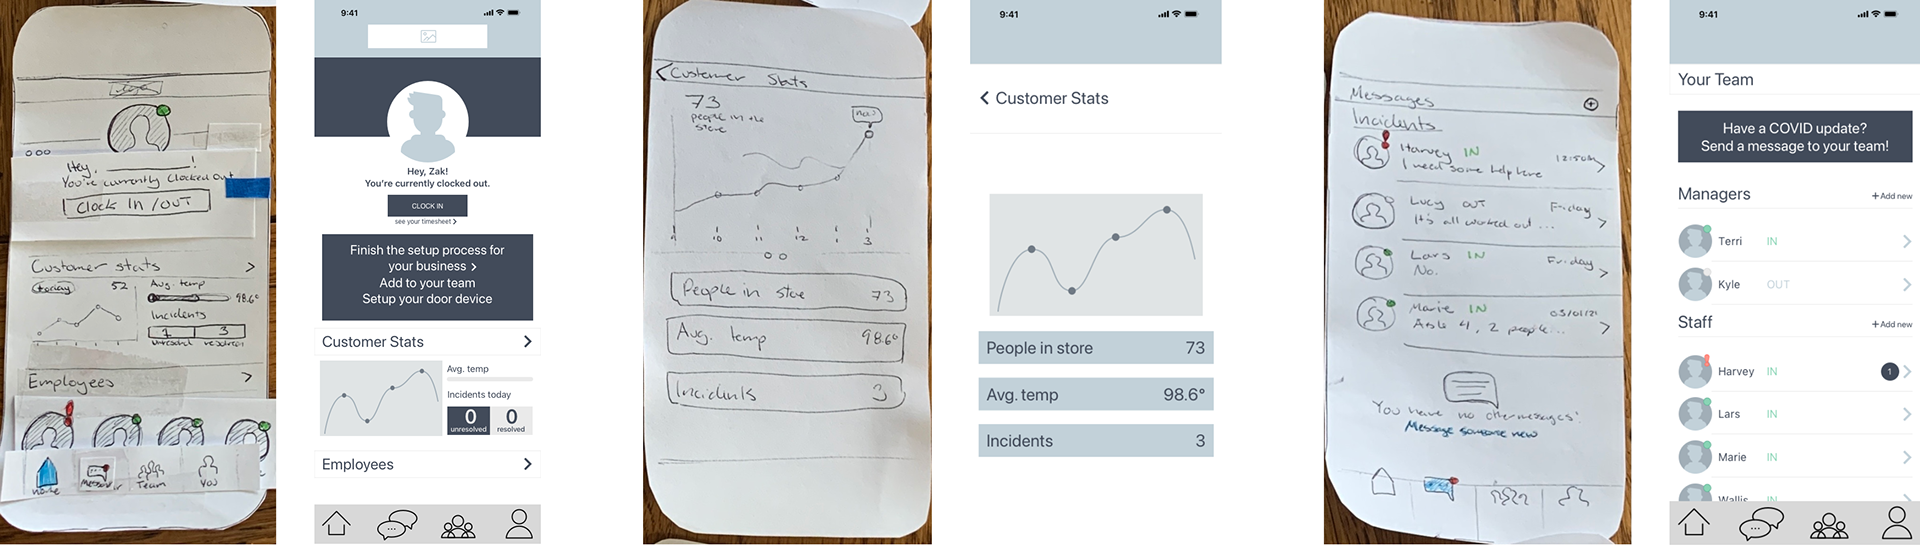 Logo
Hey, ________!
You're currently Clocked Out
Clock IN /OUT
Customer stats >
today 52
Avg. temp
98.6°
Incidents
1 3
unresolved resolved
Employees >
Home
Messages
Team
You
9:41
Hey, Zak!
You're currently clocked out.
CLOCK IN
see your timesheet >
Finish the setup process for
your business >
Add to your team
Setup your door device
Customer Stats >
Avg. temp
Incidents today
0 0
unresolved resolved
Employees >
< Customer Stats
73
people in the
store
now
9 10 11 12 3
People in store 73
Avg. temp 98.6°
Incidents 3
9:41
< Customer Stats
People in store 73
Avg. temp 98.6°
Incidents 3
Messages
Incidents
Harvey IN 12:50pm >
I need some help here
Lucy OUT Friday >
It's all worked out ...
Lars IN Friday >
No.
Marie IN 03/01/21 >
Aisle 4, 2 people...
You have no other messages!
Message someone new
9:41
Your Team
Have a COVID update?
Send a message to your team!
Managers +Add new
Terri IN >
Kyle OUT >
Staff +Add new
Harvey IN 1 >
Lars IN >
Marie IN >
Wallis IN